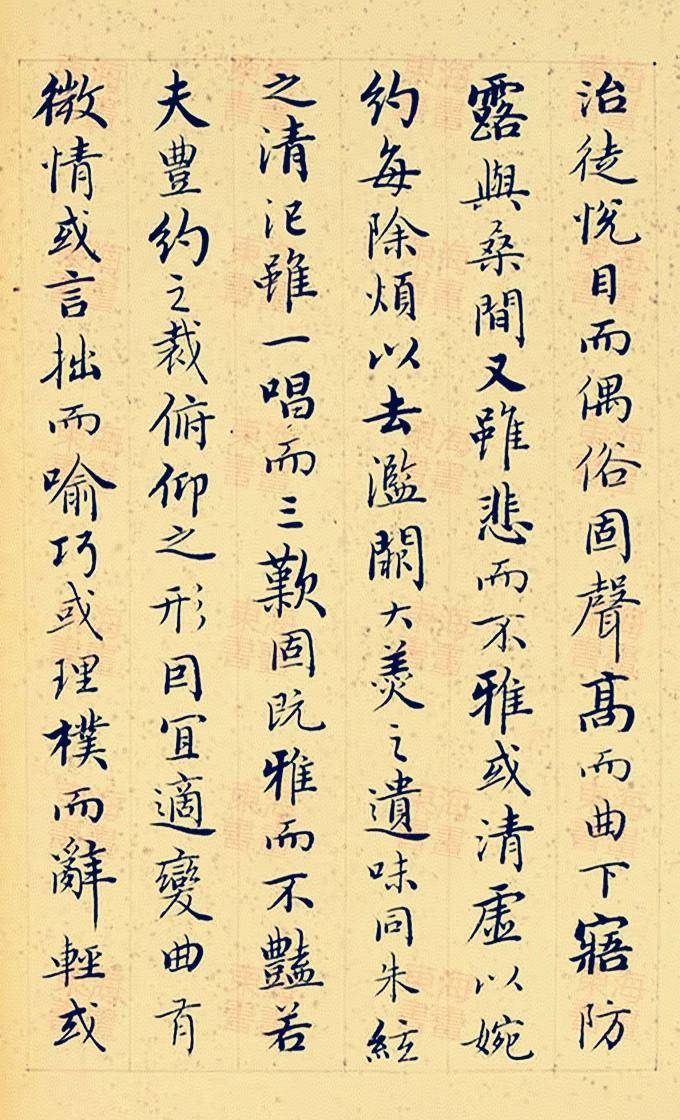 治徒悅目而偶俗固聲高而曲下寤防
露與桑間又雖悲而不雅或清虛以婉
約每除煩以去濫闕大羹之遺味同朱絃
之清氾雖一唱而三歎固既雅而不豔若
夫豐約之裁俯仰之形因宜適變曲有
微情或言拙而喻巧或理樸而辭輕或